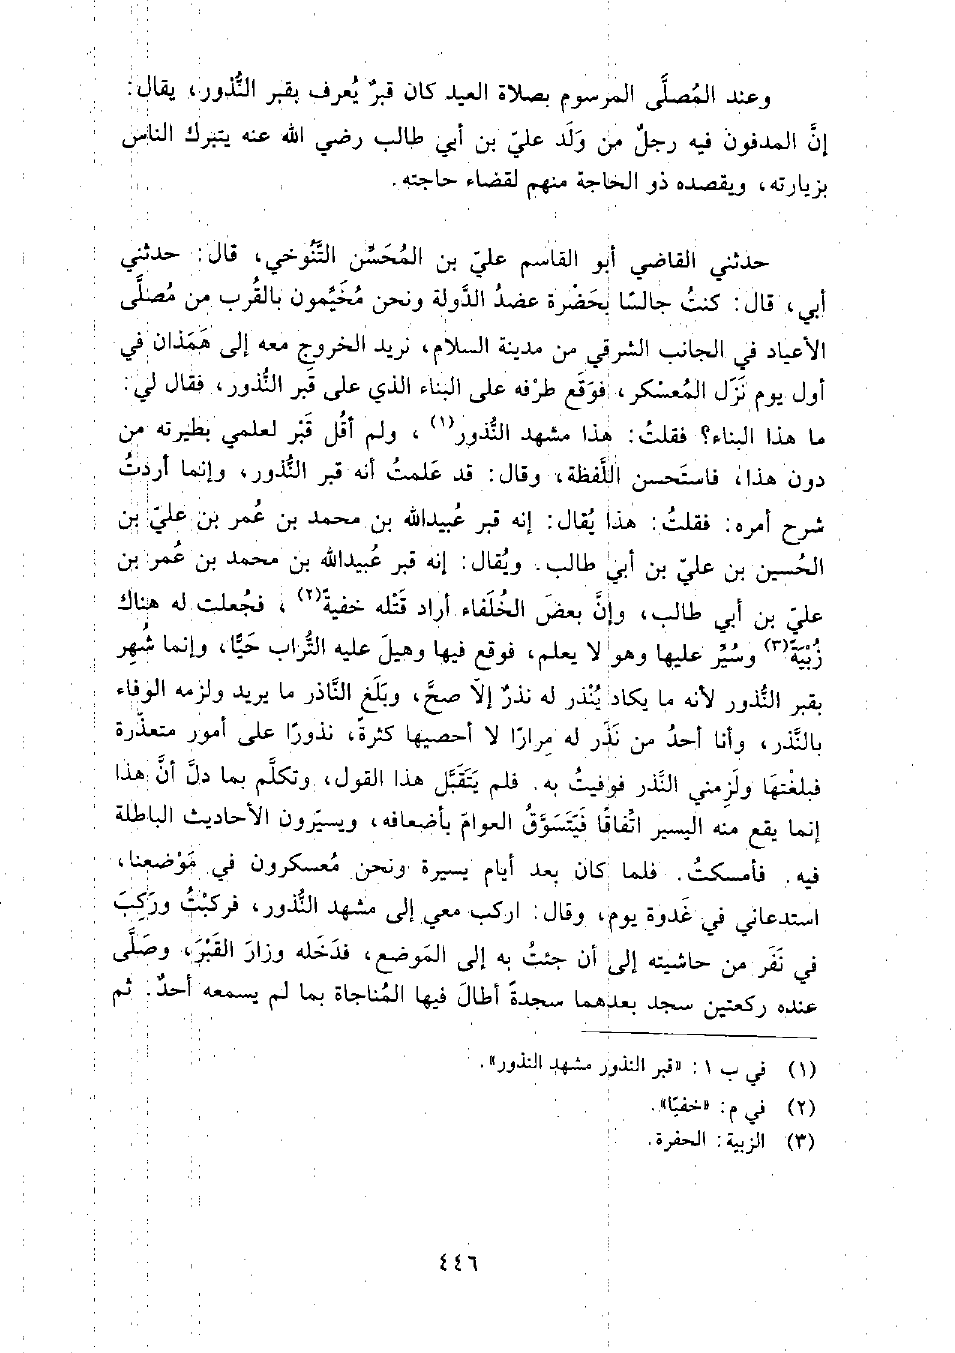 وعند المُصلَّى المرسوم بصلاة العيد كان قبرٌ يُعرف بقبر النُّذور، يقال:
إنَّ المدفون فيه رجلٌ من وَلَد عليّ بن أبي طالب رضي الله عنه يتبرك الناس
بزيارته، ويقصده ذو الحاجة منهم لقضاء حاجته.
حدثني القاضي أبو القاسم عليّ بن المُحَسِّن التَّنُوخي، قال: حدثني
أبي، قال: كنتُ جالسًا بحَضْرة عضدُ الدَّولة ونحن مُخَيَّمون بالقُرب من مُصلَّى
الأعياد في الجانب الشرقي من مدينة السلام، نريد الخروج معه إلى هَمَذان في
أول يوم نَزَل المُعسْكر، فوَقَع طرْفه على البناء الذي على قَبر النُّذور، فقال لي:
ما هذا البناء؟ فقلتُ: هذا مشهد النُّذور(١)، ولم أقُل قَبْر لعلمي بطيرته من
دون هذا، فاستَحسن اللَّفظة، وقال: قد عَلمتُ أنه قبر النُّذور، وإنما أردتُ
شرح أمره: فقلتُ: هذا يُقال: إنه قبر عُبيدالله بن محمد بن عُمر بن عليّ بن
الحُسين بن عليّ بن أبي طالب. ويُقال: إنه قبر عُبيدالله بن محمد بن عُمر بن
عليّ بن أبي طالب، وإنَّ بعضَ الخُلَفاء أراد قَتْله خفيةً(٢)، فجُعلت له هناك
زُبْيَةٌ(٣) وسُيِّر عليها وهو لا يعلم، فوقع فيها وهيلَ عليه التُّراب حَيًّا، وإنما شُهِر
بقبر النُّذور لأنه ما يكاد يُنْذر له نذرٌ إلّا صحَّ، وبَلَغ النَّاذر ما يريد ولزمه الوفاء
بالنَّذر، وأنا أحدُ من نَذَر له مِرارًا لا أحصيها كثرةً، نذورًا على أمور متعذّرة
فبلغْتهَا ولَزِمني النَّذر فوفيتُ به. فلم يَتَقَبَّل هذا القول، وتكلَّم بما دلَّ أنَّ هذا
إنما يقع منه اليسير اتِّفاقًا فيَتَسَوَّقُ العوامّ بأضعافه، ويسيّرون الأحاديث الباطلة
فيه. فأمسكتُ. فلما كان بعد أيام يسيرة ونحن مُعسكرون في مَوْضعنا،
استدعاني في غَدوة يوم، وقال: اركب معي إلى مشهد النُّذور، فركبْتُ ورَكِبَ
في نَفَر من حاشيته إلى أن جئتُ به إلى المَوضع، فدَخَله وزارَ القَبْرَ، وصَلَّى
عنده ركعتين سجد بعدهما سجدةً أطالَ فيها المُناجاة بما لم يسمعه أحدٌ. ثم
(١) في ب ١: «قبر النذور مشهد النذور».
(٢) في م: «خفيًا».
(٣) الزبية: الحفرة.
٤٤٦